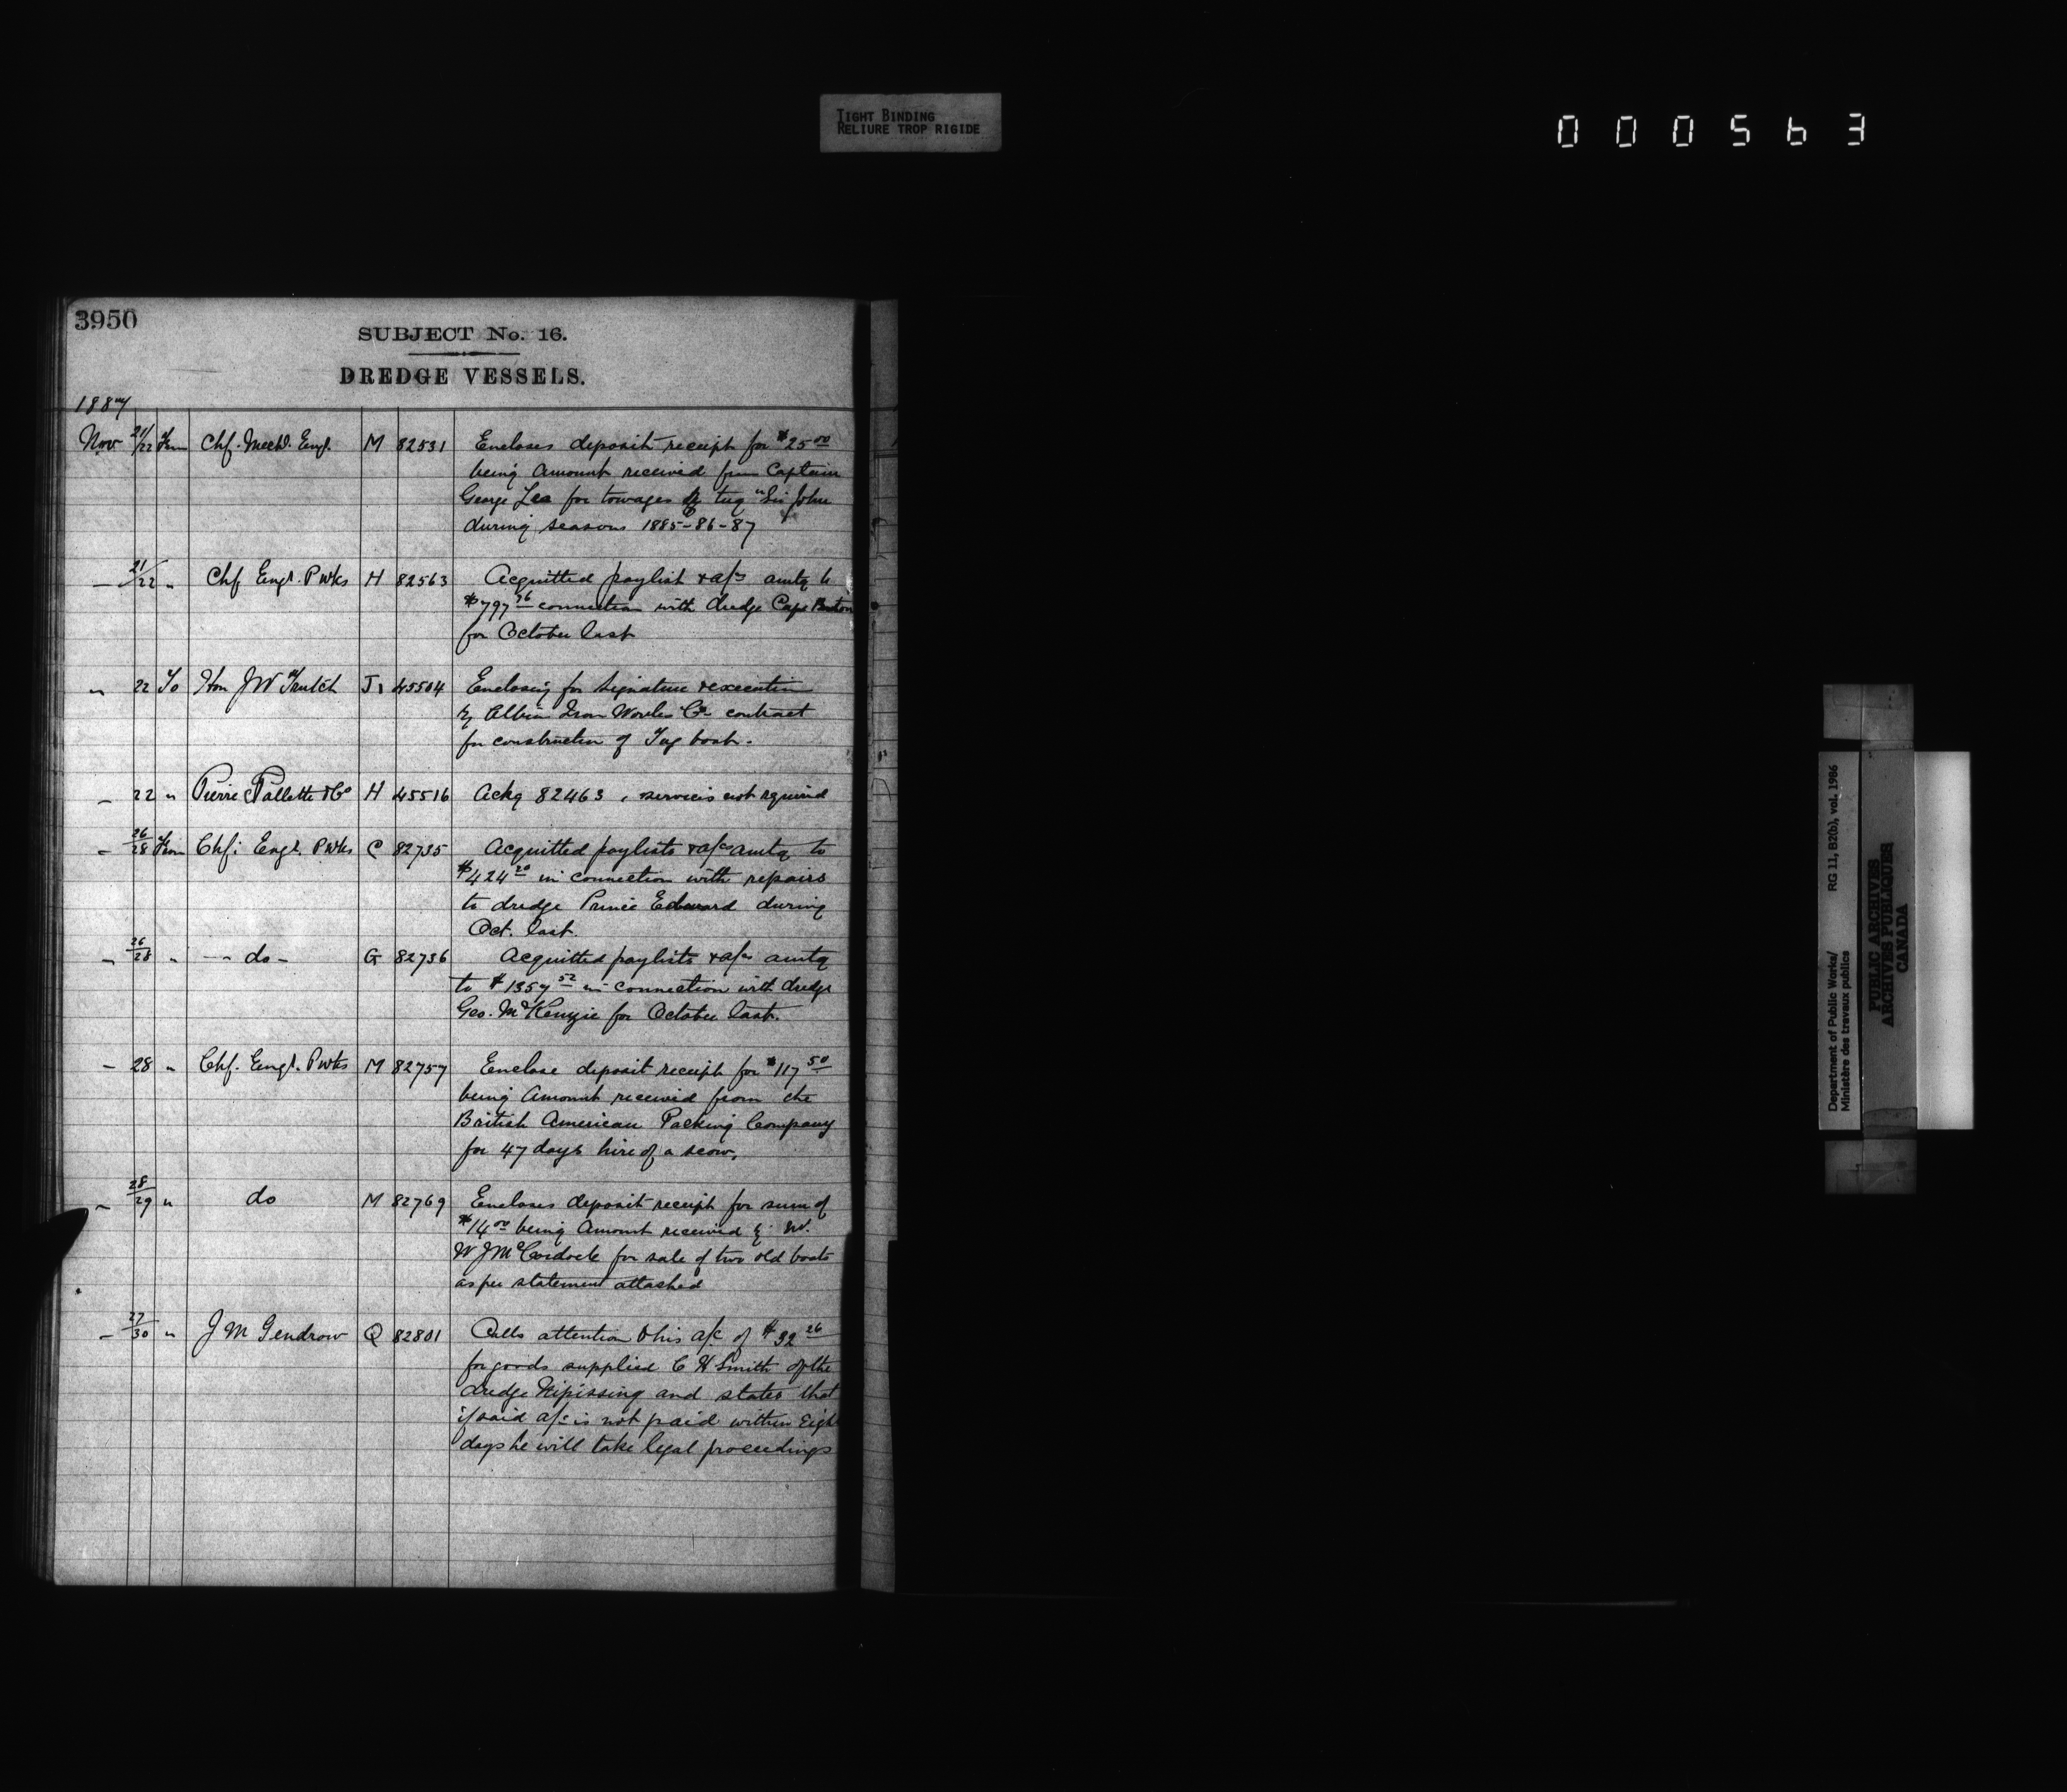 TIGHT BINDING
RELIURE TROP RIGIDE
000563
3950
SUBJECT No. 16.
DREDGE VESSELS.
1887
Nov 21/22 From Chf. Mechl. Engr. M 82531 Encloses deposit receipt for $25 00
being Amount received from Captain
George Lea for towages by tug "Sir John
during seasons 1885-86-87
— 21/22 " Chf Engr. P Wks H 82563 Acquitted paylist & a/cs amtg to
$797 76 connection with dredge Cape Breton
for October last
" 22 To Hon J W Trutch J1 45504 Enclosing for signature & execution
by Albion Iron Works Co contract
for construction of Tug boat.
— 22 " Pierre Pallette & Co H 45516 Ackg 82463, services not required
— 26/28 From Chf. Engr. P Wks C 82735 Acquitted paylists & a/cs amtg to
$424 20 in connection with repairs
to dredge Prince Edward during
Oct. last.
— 26/28 " — do — G 82736 Acquitted paylists & a/cs amtg
to $1357 52 in connection with dredge
Geo. McKenzie for October last.
— 28 " Chf. Engr. P Wks M 82757 Enclose deposit receipt for $117 50
being Amount received from the
British American Packing Company
for 47 days hire of a scow.
— 28/29 " do M 82769 Encloses deposit receipt for sum of
$14 00 being Amount received by Mr.
W J McCordock for sale of two old boats
as per statement attached
— 27/30 " J M Gendrow Q 82801 Calls attention to his a/c of $32 26
for goods supplied C H Smith of the
dredge Nipissing and states that
if said a/c is not paid within Eight
days he will take legal proceedings
Department of Public Works/ RG 11, B2(b), vol. 1986
Ministère des travaux publics
PUBLIC ARCHIVES
ARCHIVES PUBLIQUES
CANADA